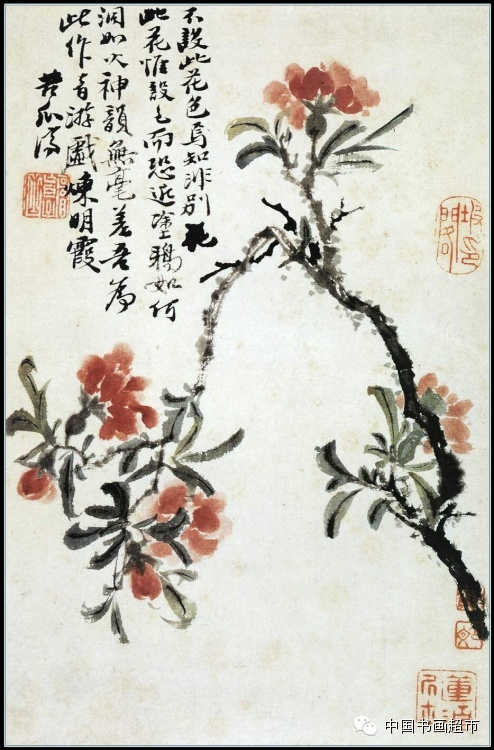 不設此花色焉知非別花
此花惟設色而恐近塗鴉如何
洞如火神韻無毫差吾為
此作者游戲煉明霞
苦瓜濟
中国书画超市